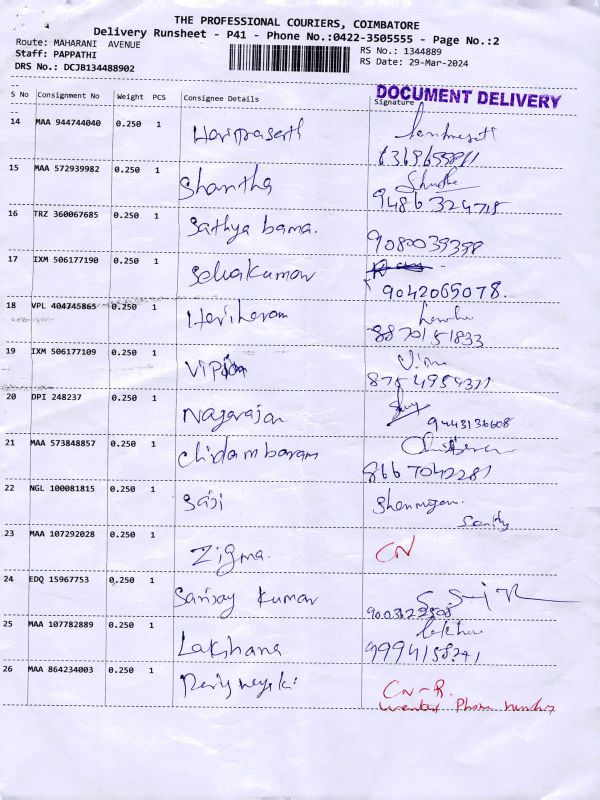 THE PROFESSIONAL COURIERS, COIMBATORE
Delivery Runsheet - P41 - Phone No.:0422-3505555 - Page No.:2
Route: MAHARANI AVENUE
Staff: PAPPATHI
DRS No.: DCJB134488902
RS No.: 1344889
RS Date: 29-Mar-2024
DOCUMENT DELIVERY
S No Consignment No Weight PCS Consignee Details Signature
14 MAA 944744040 0.250 1 Hariprasath
15 MAA 572939982 0.250 1 Shantha
9486324715
16 TRZ 360067685 0.250 1 Sathya bama.
9080039398
17 IXM 506177190 0.250 1 Selvakumar
9042065078.
18 VPL 404745865 0.250 1 Hariharam
8870151833
19 IXM 506177109 0.250 1 Vipin
8754954311
20 DPI 248237 0.250 1 Nagarajan
9443136608
21 MAA 573848857 0.250 1 Chidambaram
8667042281
22 NGL 100081815 0.250 1 Saji Shanmugam.
23 MAA 107292028 0.250 1 Zigma. CN
24 EDQ 15967753 0.250 1 Sanjay Kumar
25 MAA 107782889 0.250 1 Lakshana
9994158241
26 MAA 864234003 0.250 1 CN-R.
wanted Phone number